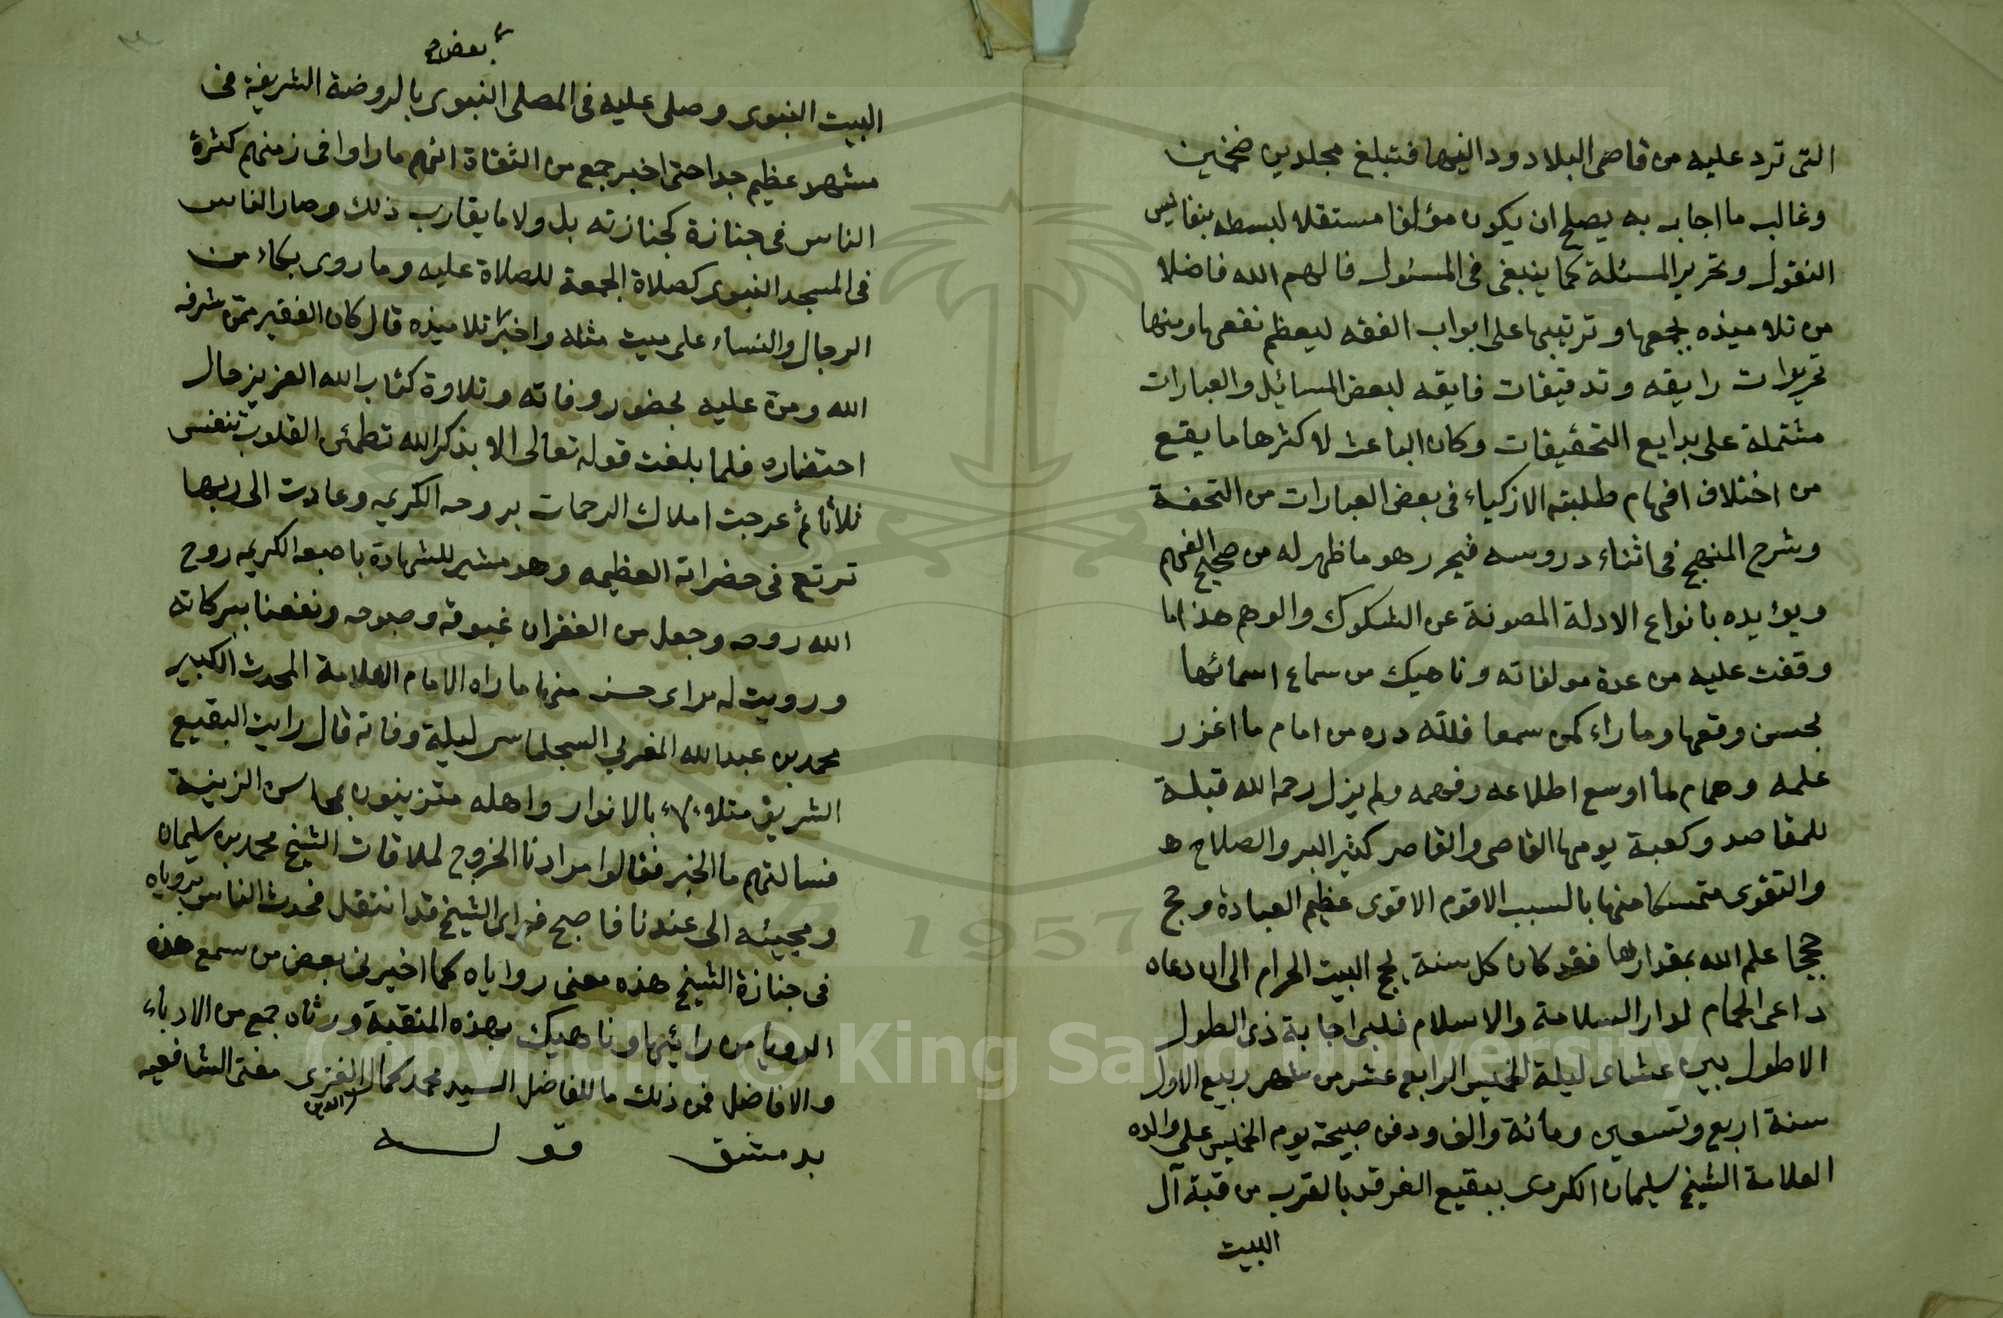 التى ترد عليه من قاصى البلاد ودانيها فتبلغ مجلدين ضخمين
وغالب ما اجاب به يصلح ان يكون مؤلفا مستقلا لبسطه بنفايس
النقول وتحرير المسئلة كما ينبغى فى المسئول فالهم الله فاضلا
من تلاميذه لجمعها وترتيبها على ابواب الفقه ليعظم نفعها ومنها
تحريرات رايقه وتدقيقات فايقه لبعض المسائيل والعبارات
مشتملة على بدايع التحقيقات وكان الباعث لاكثرها ما يقع
من اختلاف افهام طلبته الازكياء فى بعض العبارات من التحفة
وشرح المنهج فى اثناء دروسه فيحرر هو ما ظهر له من صحيح الفهم
ويؤيده بانواع الادلة المصونة عن الشكوك والوهم هذا ما
وقفت عليه من عدة مولفاته وناهيك من سماع اسمائها
بحسن وقعها وما راء كمن سمعا فلله دره من امام ما اغزر
علمه وهمام ما اوسع اطلاعه وفهمه ولم يزل رحمه الله قبلة
للمقاصد وكعبة يومها القاصى والقاصر كثير البر والصلاح
والتقوى متمسكا منها بالسبب الاقوم الاقوى عظيم العبادة وحج
حججا علم الله بمقدارها فقد كان كل سنة يحج البيت الحرام الى ان دعاه
داعى الحمام لدار السلامة والاسلام فلبى اجابة ذى الطول
الاطول بين عشاى ليلة الخميس الرابع عشر من شهر ربيع الاول
سنة اربع وتسعين ومائة والف ودفن صبيحة يوم الخميس على والده
العلامة الشيخ سليمان الكردى ببقيع الغرقد بالقرب من قبة آل
البيت
بعض
البيت النبوى وصلى عليه فى المصلى النبوى بالروضة الشريفة فى
مشهد عظيم جدا حتى اخبر جمع من الثقاة انهم ما راوا فى زمنهم كثرة
الناس فى جنازة كجنازته بل ولا ما يقارب ذلك وصار الناس
فى المسجد النبوى كصلاة الجمعة للصلاة عليه وما روى بكاء من
الرجال والنساء على ميت مثله واخبر تلاميذه قال كان الفقير ممن شرفه
الله ومن عليه بحضور وفاته وتلاوة كتاب الله العزيز حال
احتضاره فلما بلغت قوله تعالى الا بذكر الله تطمئن القلوب تنفس
ثلاثا ثم عرجت املاك الرحمات بروحه الكريمه وعادت الى ربها
ترتع فى حضراته العظيمه وهو مشير للشهادة باصبعه الكريمه روح
الله روحه وجعل من الغفران غبوقه وصبوحه ونفعنا ببركاته
ورويت له مراى حسنه منها ما راه الامام العلامة المحدث الكبير
محمد بن عبد الله المغربي السجلماسى ليلة وفاته قال رايت البقيع
الشريف متلاء لاء بالانوار واهله متزينون بمحاسن الزينة
فسالتهم ما الخبر فقالوا مرادنا الخروج لملاقات الشيخ محمد بن سليمان
ومجيئه الى عندنا فاصبح فراى الشيخ قد انتقل فحدث الناس برؤياه
فى جنازة الشيخ هذه معنى روياه كما اخبرنى بعض من سمع هذه
الرويا من رائيها وناهيك بهذه المنقبة ورثاه جمع من الادباء
والافاضل فمن ذلك ما للفاضل السيد محمد كمال الدين الغزى مفتى الشافعيه
بدمشق قوله
1957
Copyright © King Saud University